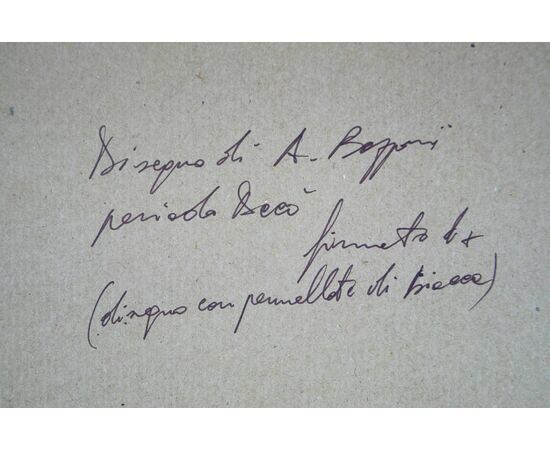 Disegno di A.
periodo Decò
firmato
(disegno con pennellate di Biacca)